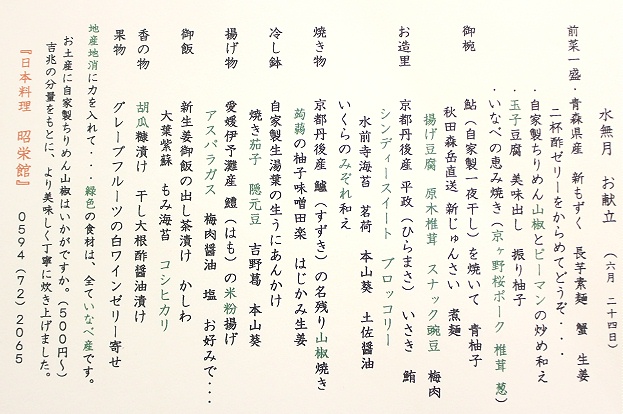 水無月 お献立 (六月 二十四日)
前菜一盛・青森県産 新もずく 長芋素麺 蟹 生姜
二杯酢ゼリーをからめてどうぞ・・・
・自家製ちりめん山椒とピーマンの炒め和え
・玉子豆腐 美味出し 振り柚子
・いなべの恵み焼き(京ヶ野桜ポーク 椎茸 葱)
御椀 鮎(自家製一夜干し)を焼いて 青柚子
秋田森岳直送 新じゅんさい 煮麺
揚げ豆腐 原木椎茸 スナック豌豆 梅肉
お造里 京都丹後産 平政(ひらまさ) いさき 鮪
シンディースイート ブロッコリー
水前寺海苔 茗荷 本山葵 土佐醤油
いくらのみぞれ和え
焼き物 京都丹後産 鱸(すずき)の名残り山椒焼き
蒟蒻の柚子味噌田楽 はじかみ生姜
冷し鉢 自家製生湯葉の生うにあんかけ
焼き茄子 隠元豆 吉野葛 本山葵
揚げ物 愛媛伊予灘産 鱧(はも)の米粉揚げ
アスパラガス 梅肉醤油 塩 お好みで・・・
御飯 新生姜御飯の出し茶漬け かしわ
大葉紫蘇 もみ海苔 コシヒカリ
香の物 胡瓜糠漬け 干し大根酢醤油漬け
果物 グレープフルーツの白ワインゼリー寄せ
地産地消に力を入れて・・・緑色の食材は、全ていなべ産です。
お土産に自家製ちりめん山椒はいかがですか。(500円〜)
吉兆の分量をもとに、より美味しく丁寧に炊き上げました。
『日本料理 昭栄館』 0594(72)2065